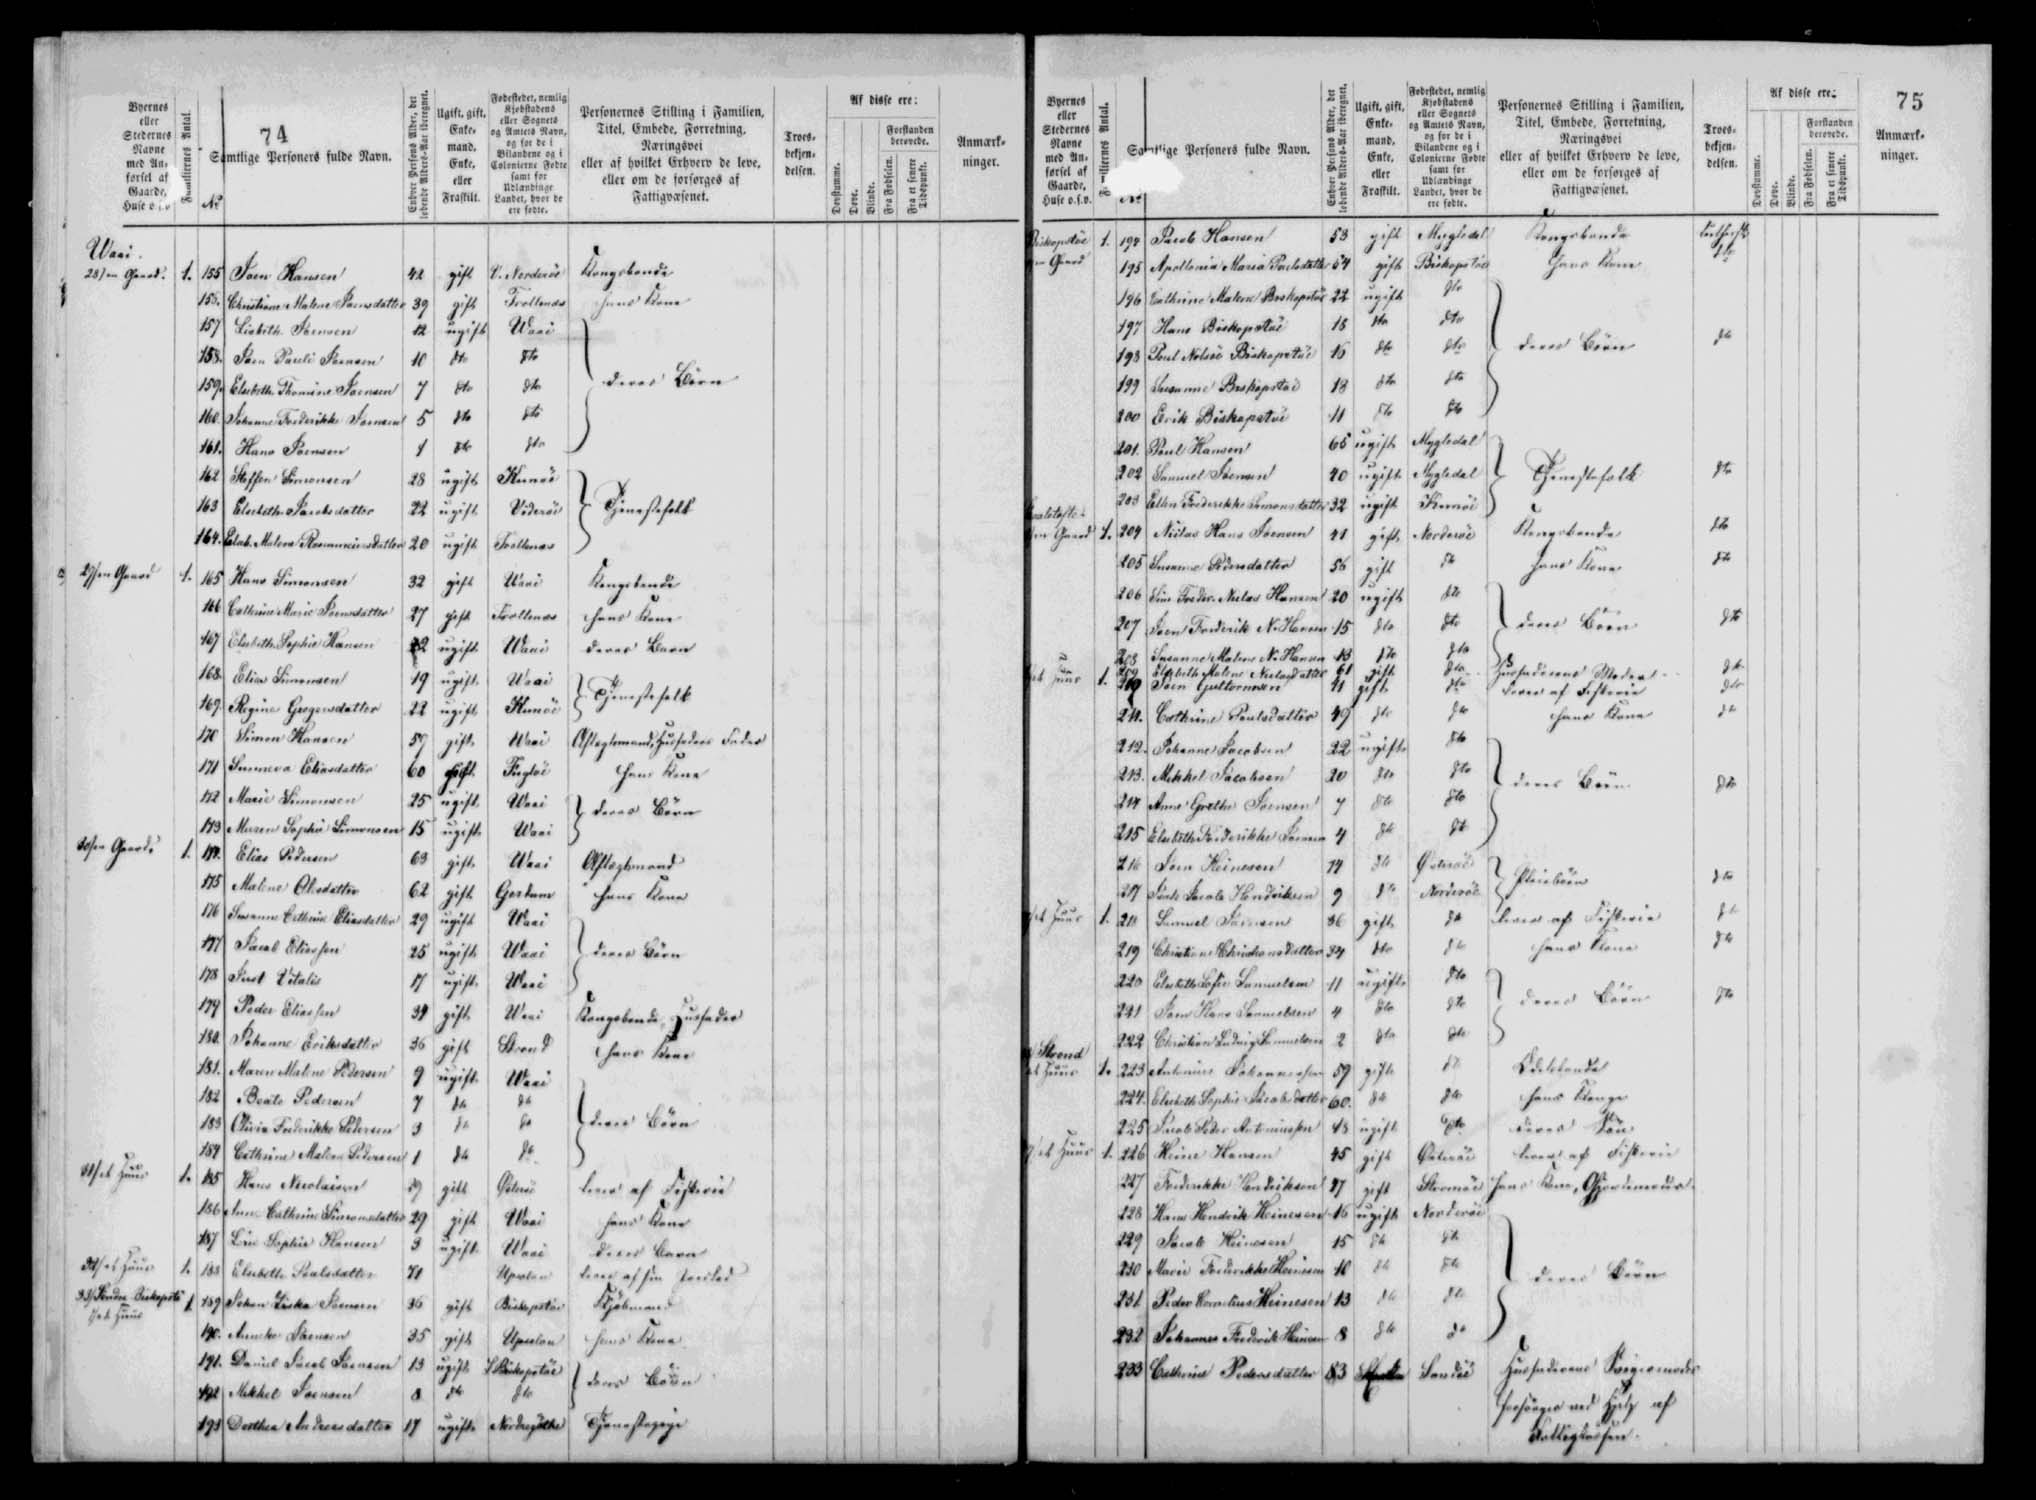 74
Byernes eller Stedernes Navne med Anførsel af Gaarde, Huse o.s.v.
Familiernes Antal.
No
Samtlige Personers fulde Navn.
Enhver Persons Alder, det løbende Alders-Aar iberegnet.
Ugift, gift, Enkemand, Enke, eller Fraskilt.
Fødestedet, nemlig Kjøbstadens eller Sognets og Amtets Navn, og for de i Bilandene og i Colonierne Fødte samt for Udlændinge Landet, hvor de ere fødte.
Personernes Stilling i Familien, Titel, Embede, Forretning, Næringsvei eller af hvilket Erhverv de leve, eller om de forsørges af Fattigvæsenet.
Troesbekjendelsen.
Af disse ere:
Døvstumme.
Døve.
Blinde.
Forstanden berøvede.
Fra Fødselen.
Fra et senere Tidspunkt.
Anmærkninger.
Waai.
28/ en Gaard. 1. 155 Joen Hansen 42 gift N. Norderøe Kongsbonde
156. Christiane Malene Joensdatter 39 gift Trollenæs hans Kone
157 Lisbeth Joensen 12 ugift Waai
158. Joen Pauli Joensen 10 dto dto deres Börn
159. Elsebeth Thomine Joensen 7 dto dto
160. Johanne Frederikke Joensen 5 dto dto
161. Hans Joensen 1 dto dto
162 Steffen Simonsen 28 ugift Kunöe
163 Elsebeth Jacobsdatter 22 ugift Viderøe Tjenestefolk
164. Elsb. Malene Rasmusdatter 20 ugift Trollenæs
29/ en Gaard 1. 165 Hans Simonsen 32 gift Waai Kongsbonde
166 Cathrine Marie Joensdatter 27 gift Trollenæs hans Kone
167 Elsebeth Sophie Hansen 2 ugift Waai deres Barn
168. Elias Simonsen 19 ugift Waai
169. Regine Gregersdatter 22 ugift Kunöe Tjenestefolk
170 Simon Hansen 59 gift Waai Aftægtsmand, Husfaders Fader
171 Sunneva Eliasdatter 60 gift Fuglöe hans Kone
172 Marie Simonsen 25 ugift Waai deres Börn
173 Maren Sophie Simonsen 15 ugift Waai
30/ en Gaard 1. 174. Elias Pedersen 63 gift Waai Aftægtsmand
175 Malene Olesdatter 62 gift Gerdum hans Kone
176 Susanne Cathrine Eliasdatter 29 ugift Waai
177 Jacob Eliassen 25 ugift Waai deres Börn
178 Just Vitalis 17 ugift Waai
179 Peder Eliassen 34 gift Waai Kongsbonde, Husfader
180. Johanne Eriksdatter 36 gift Strond hans Kone
181. Maren Malene Pedersen 9 ugift Waai
182 Beate Pedersen 7 dto dto
183 Olivia Frederikke Pedersen 3 do do deres Börn
184 Cathrine Malene Pedersen 1 dto dto
31/ et Huus 1. 185 Hans Nicolaisen 29 gift Österöe lever af Fiskerie
186 Anne Cathrine Simonsdatter 29 gift Waai hans Kone
187 Sophie Hansen 3 ugift Waai deres Barn
32/ et Huus 1. 188 Elsebeth Poulsdatter 71 Upsalen
33/ Søndre Biskopstö
et Huus 1 189 Johan Ziska Joensen 36 gift Biskopstöe Kjøbmand
190. Anneke Joensen 35 gift Upsalen hans Kone
191. Daniel Jacob Joensen 13 ugift S Biskopstöe
192 Mikkel Joensen 8 dto dto deres Börn
193 Dorthea Andreasdatter 17 ugift Nordregöthe Tjenestepige
75
Byernes eller Stedernes Navne med Anførsel af Gaarde, Huse o.s.v.
Familiernes Antal.
Samtlige Personers fulde Navn.
Enhver Persons Alder, det løbende Alders-Aar iberegnet.
Ugift, gift, Enkemand, Enke, eller Fraskilt.
Fødestedet, nemlig Kjøbstadens eller Sognets og Amtets Navn, og for de i Bilandene og i Colonierne Fødte samt for Udlændinge Landet, hvor de ere fødte.
Personernes Stilling i Familien, Titel, Embede, Forretning, Næringsvei eller af hvilket Erhverv de leve, eller om de forsørges af Fattigvæsenet.
Troesbekjendelsen.
Af disse ere:
Døvstumme.
Døve.
Blinde.
Forstanden berøvede.
Fra Fødselen.
Fra et senere Tidspunkt.
Anmærkninger.
Biskopstöe 1. 194 Jacob Hansen 53 gift Mygledal Kongsbonde Luthersk
en Gaard 195 Apollonia Maria Poulsdatter 54 gift Biskopstöe hans Kone dto
196 Cathrine Malene Biskopstöe 22 ugift dto
197 Hans Biskopstöe 18 dto dto
198 Poul Nolsöe Biskopstöe 16 dto dto deres Börn dto
199 Susanne Biskopstöe 13 dto dto
200 Erik Biskopstöe 11 dto dto
201. Poul Hansen 65 ugift Mygledal
202 Samuel Joensen 40 ugift Mygledal Tjenestefolk dto
203 Ellen Frederikke Simonsdatter 32 ugift Kunöe
en Gaard 1. 204 Niclas Hans Joensen 41 gift Norderöe Kongsbonde dto
205 Susanne Pedersdatter 56 gift dto hans Kone dto
206 Sine Freder. Niclas Hansen 20 ugift dto
207 Joen Frederik N. Hansen 15 dto dto deres Börn dto
208 Susanne Malene N. Hansen 13 dto dto
209 Elsebeth Malene Nielsdatter 61 gift dto Husfaderens Moder dto
et Huus 1. 210 Joen Guttormsen 41 gift dto lever af Fiskerie dto
211. Cathrine Poulsdatter 49 dto dto hans Kone dto
212. Johanne Jacobsen 22 ugift dto
213. Mikkel Jacobsen 20 dto dto deres Börn dto
214 Anne Grethe Joensen 7 dto dto
215 Elsebeth Frederikke Joensen 4 dto dto
216 Joen Heinesen 14 dto Österöe
217 Jacob Hendriksen 9 dto Norderöe Pleiebörn dto
et Huus 1. 218 Samuel Joensen 36 gift dto lever af Fiskerie dto
219 Christiane Christiansdatter 34 dto dto hans Kone dto
220 Elsebeth Sofie Samuelsen 11 ugift dto
221 Joen Hans Samuelsen 4 dto dto deres Börn dto
222 Christian Ludvig Samuelsen 2 dto dto
Strond
et Huus 1. 223 Antonius Johannessen 59 gift dto Odelsbonde
224. Elsebeth Sophie Jacobsdatter 60. dto dto hans Kone
225 Jacob Peder Antoniussen 18 ugift dto deres Sön
et Huus 1. 226 Heine Hansen 45 gift Österöe lever af Fiskerie
227 Frederikke Hendriksen 47 gift Strømöe hans Kone, Gjordemoder
228 Hans Hendrik Heinesen 16 ugift Norderöe
229 Jacob Heinesen 15 dto dto
230 Marie Frederikke Heinesen 10 dto dto deres Börn
231 Peder Cornelius Heinesen 13 dto dto
232 Johannes Frederik Heinesen 8 dto do
233 Cathrine Pedersdatter 83 Sandöe Husfaderens Svigermoder
forsørges ved Hjelp af